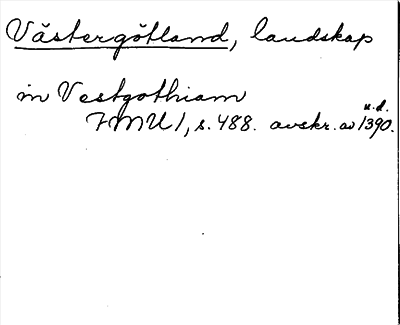 Västergötland, landskap
in Vestgothiam
FMU 1, s. 488. avskr. av 1390. u.d.